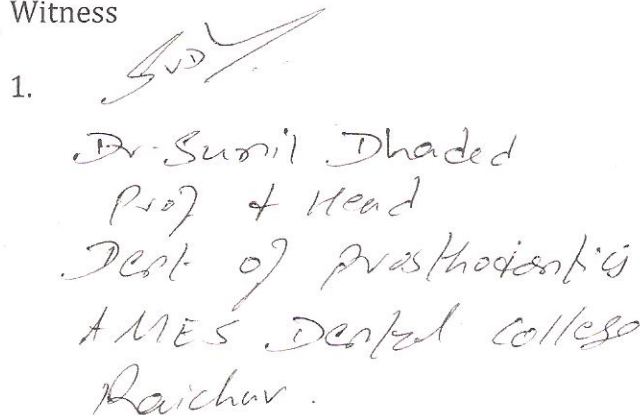 Witness
1.
Dr. Sunil Dhaded
Prof & Head
Dept. of Prosthodontics
AMES Dental College
Raichur.